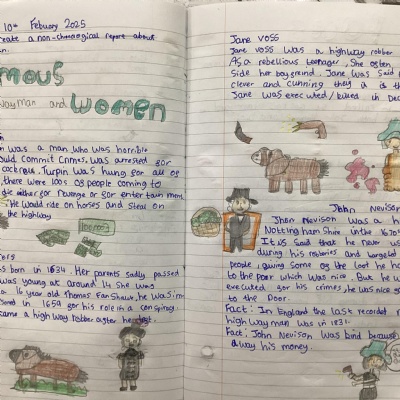 10th Febuary 2025
create a non-chronoligical report about
mous
wayman and women
was a man who was horrible
ould commit crimes. was arrested for
there were 100s of people coming to
either for revenge or for entertainment
He would ride on horses and steal on
the highway
ers
s born in 1634. Her parents sadly passed
was young at around 14 she was
a 16 year old Thomas Fanshawe, he was im
soned in 1659 for his role in a conspiracy
came a high way robber after he
Jane Voss
Jane Voss was a highway robber
As a rebellious teenager, She often
side her boyfriend. Jane was said
clever and cunning they
Jane was executed/killed in Dec
John Nevison
John Nevison was a h
Notting ham Shire in the 1670s
It is said that he never us
during his robberies and targeted
people, giving some of the loot he ha
to the poor which was nice. But he w
executed for his crimes, he was nice
to the Door.
Fact: In England the last recorded r
high way man was in 1831.
Fact: John Nevison was kind because
away his money.